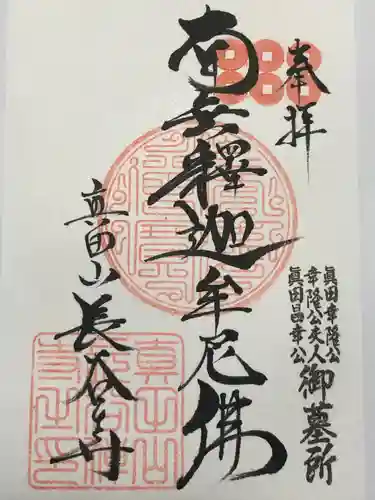 奉拝
南無釋迦牟尼佛
眞田幸隆公
幸隆公夫人
眞田昌幸公
御墓所
真田山
長谷寺